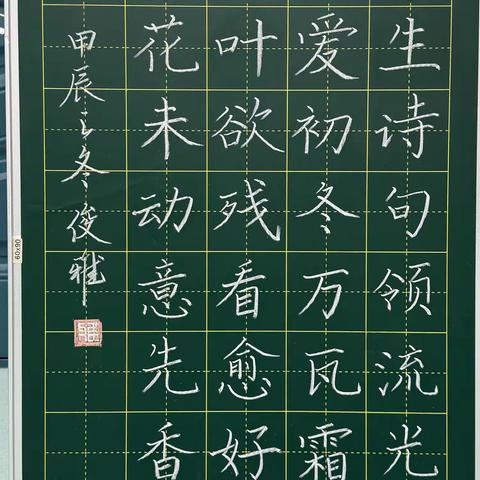 生诗句领流光
爱初冬万瓦霜
叶欲残看愈好
花未动意先香
甲辰之冬俊雅
60x90